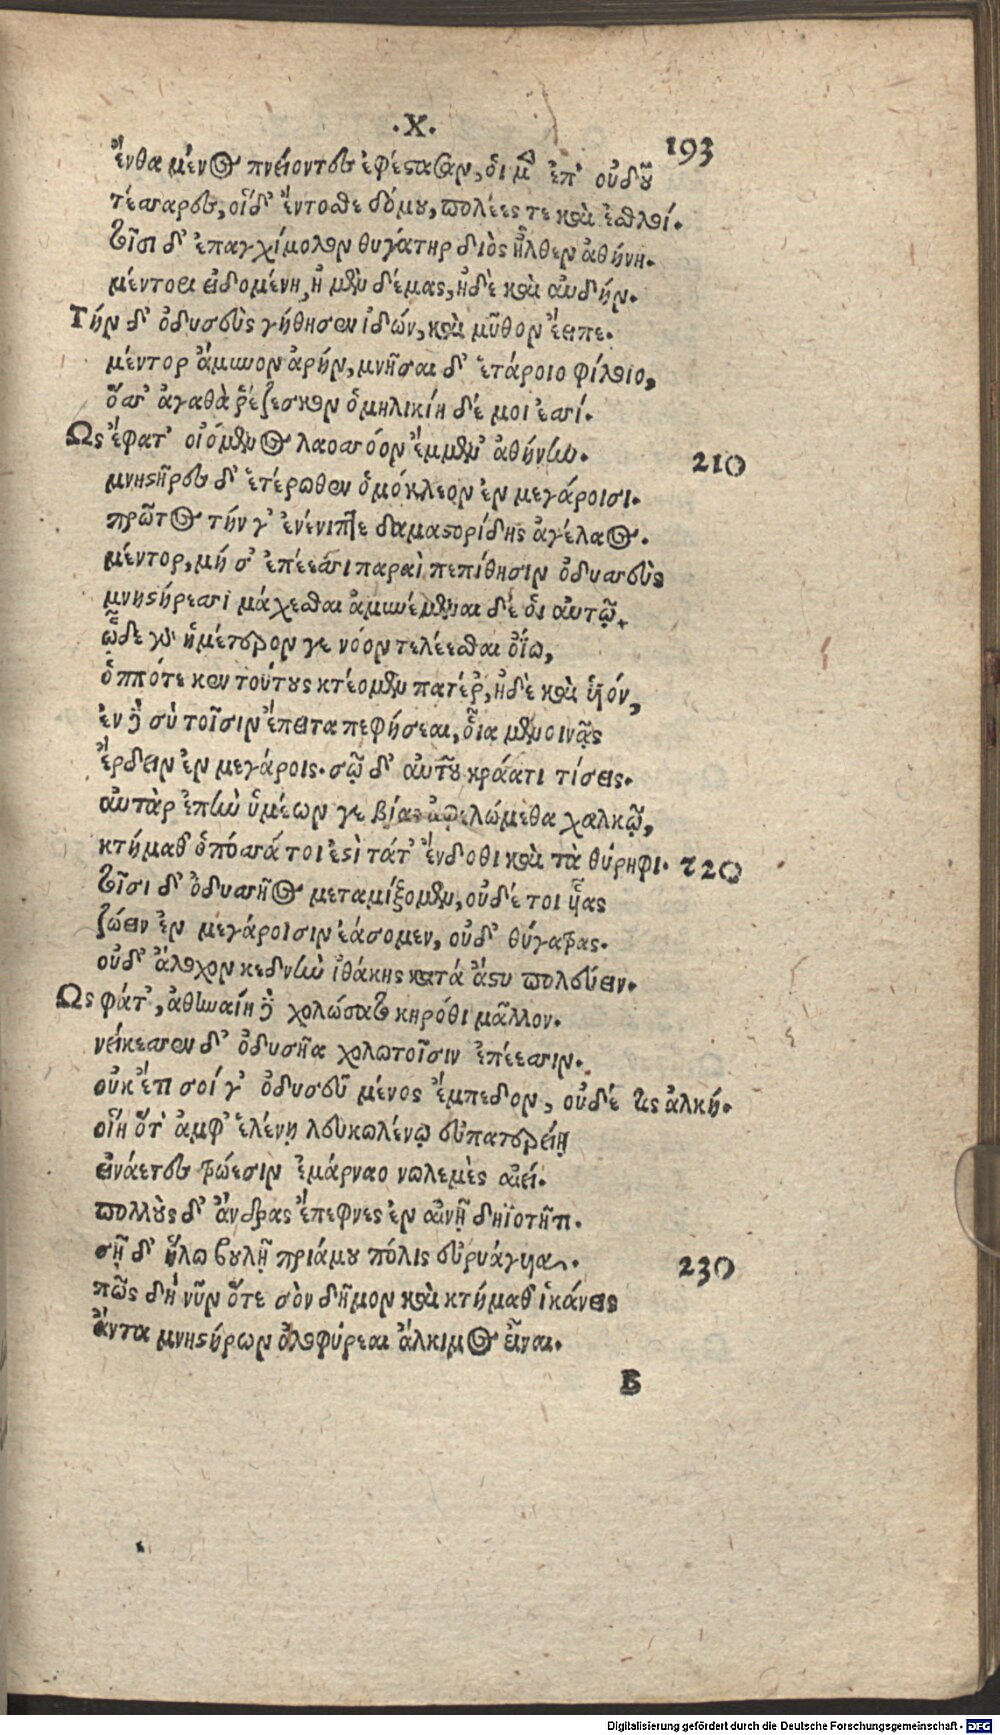 .X.
193
ἔνθα μένος πνείοντες ἐφέστασαν, οἱ μὲν ἐπ' οὐδοῦ
τέσσαρες, οἱ δ' ἔντοσθε δόμου, πολέες τε καὶ ἐσθλοί.
τοῖσι δ' ἐπαγχίμολον θυγάτηρ διὸς ἦλθεν ἀθήνη.
μέντορι εἰδομένη, ἠμὲν δέμας, ἠδὲ καὶ αὐδήν.
Τὴν δ' ὀδυσεὺς γήθησεν ἰδών, καὶ μῦθον ἔειπε.
μέντορ ἄμυνον ἀρήν, μνῆσαι δ' ἑτάροιο φίλοιο,
ὅς σ' ἀγαθὰ ῥέζεσκον ὁμηλικίη δέ μοι ἐσσί.
Ὣς ἔφατ' οἰόμενος λαοσσόον ἔμμεν' ἀθήνην. 210
μνηστῆρες δ' ἑτέρωθεν ὁμόκλεον ἐν μεγάροισι.
πρῶτος τήν γ' ἐνένιπτε δαμαστορίδης ἀγέλαος.
μέντορ, μή σ' ἐπέεσσι παραὶ πεπίθησιν ὀδυσσεὺς
μνηστήρεσσι μάχεσθαι ἀμυνέμεναι δέ οἱ αὐτῷ.
ὧδε γὰρ ἡμέτερον γε νόον τελέεσθαι ὀΐω,
ὁππότε κεν τούτους κτέομεν πατέρ', ἠδὲ καὶ υἱόν,
ἐν δὲ σὺ τοῖσιν ἔπειτα πεφήσεαι, οἷα μενοινᾷς
ἔρδειν ἐν μεγάροις. σῷ δ' αὐτοῦ κράατι τίσεις.
αὐτὰρ ἐπὴν ὑμέων γε βίας ἀφελώμεθα χαλκῷ,
κτήμαθ' ὁπόσσά τοι ἐστὶ τάτ' ἔνδοθι καὶ τὰ θύρηφι. 220
τοῖσι δ' ὀδυσσῆος μεταμίξομεν, οὐδέ τοι υἷας
ζώειν ἐν μεγάροισιν ἐάσομεν, οὐδὲ θύγατρας.
οὐδ' ἄλοχον κεδνὴν ἰθάκης κατὰ ἄστυ πολεύειν.
Ὣς φάτ', ἀθηναίη δὲ χολώσατο κηρόθι μᾶλλον.
νείκεσσεν δ' ὀδυσῆα χολωτοῖσιν ἐπέεσσιν.
οὐκέτι σοί γ' ὀδυσεῦ μένος ἔμπεδον, οὐδέ τις ἀλκή.
οἵη ὅτ' ἀμφ' ἑλένῃ λευκωλένῳ εὐπατερείῃ
εἰνάετες τρώεσιν ἐμάρναο νωλεμὲς αἰεί.
πολλοὺς δ' ἄνδρας ἔπεφνες ἐν αἰνῇ δηϊοτῆτι.
σῇ δ' ἥλω βουλῇ πριάμου πόλις εὐρυάγυια. 230
πῶς δὴ νῦν ὅτε σὸν δῆμον καὶ κτήμαθ' ἱκάνεις
ἄντα μνηστήρων ὀλοφύρεαι ἄλκιμος εἶναι.
B
Digitalisierung gefördert durch die Deutsche Forschungsgemeinschaft - DFG